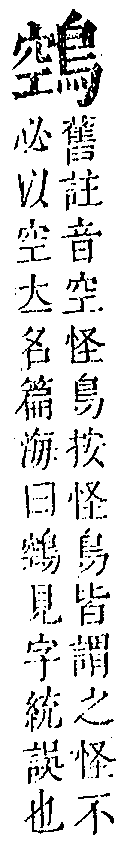 鵼
舊註音空怪鳥按怪鳥皆謂之怪不
必以空名篇海曰鵼見字統誤也